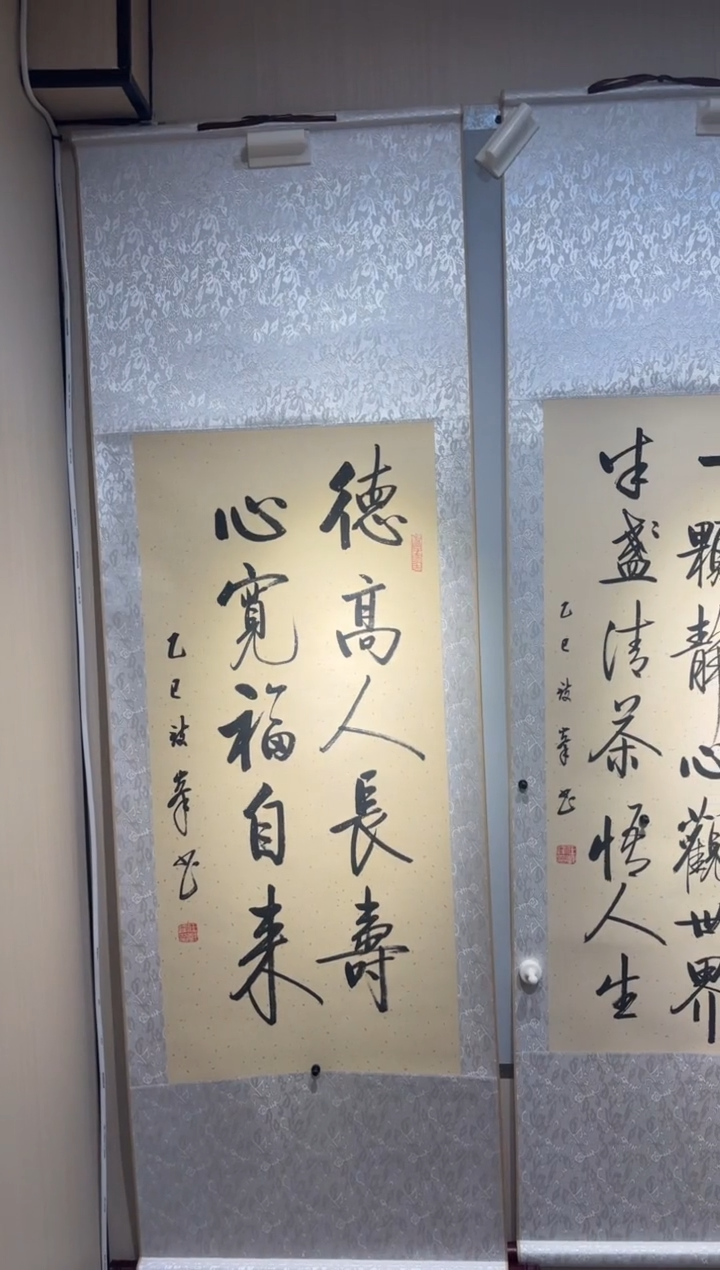 德高人長壽
心寬福自来
乙巳波峯书
一顆靜心觀世界
半盏清茶悟人生
乙巳波峯书